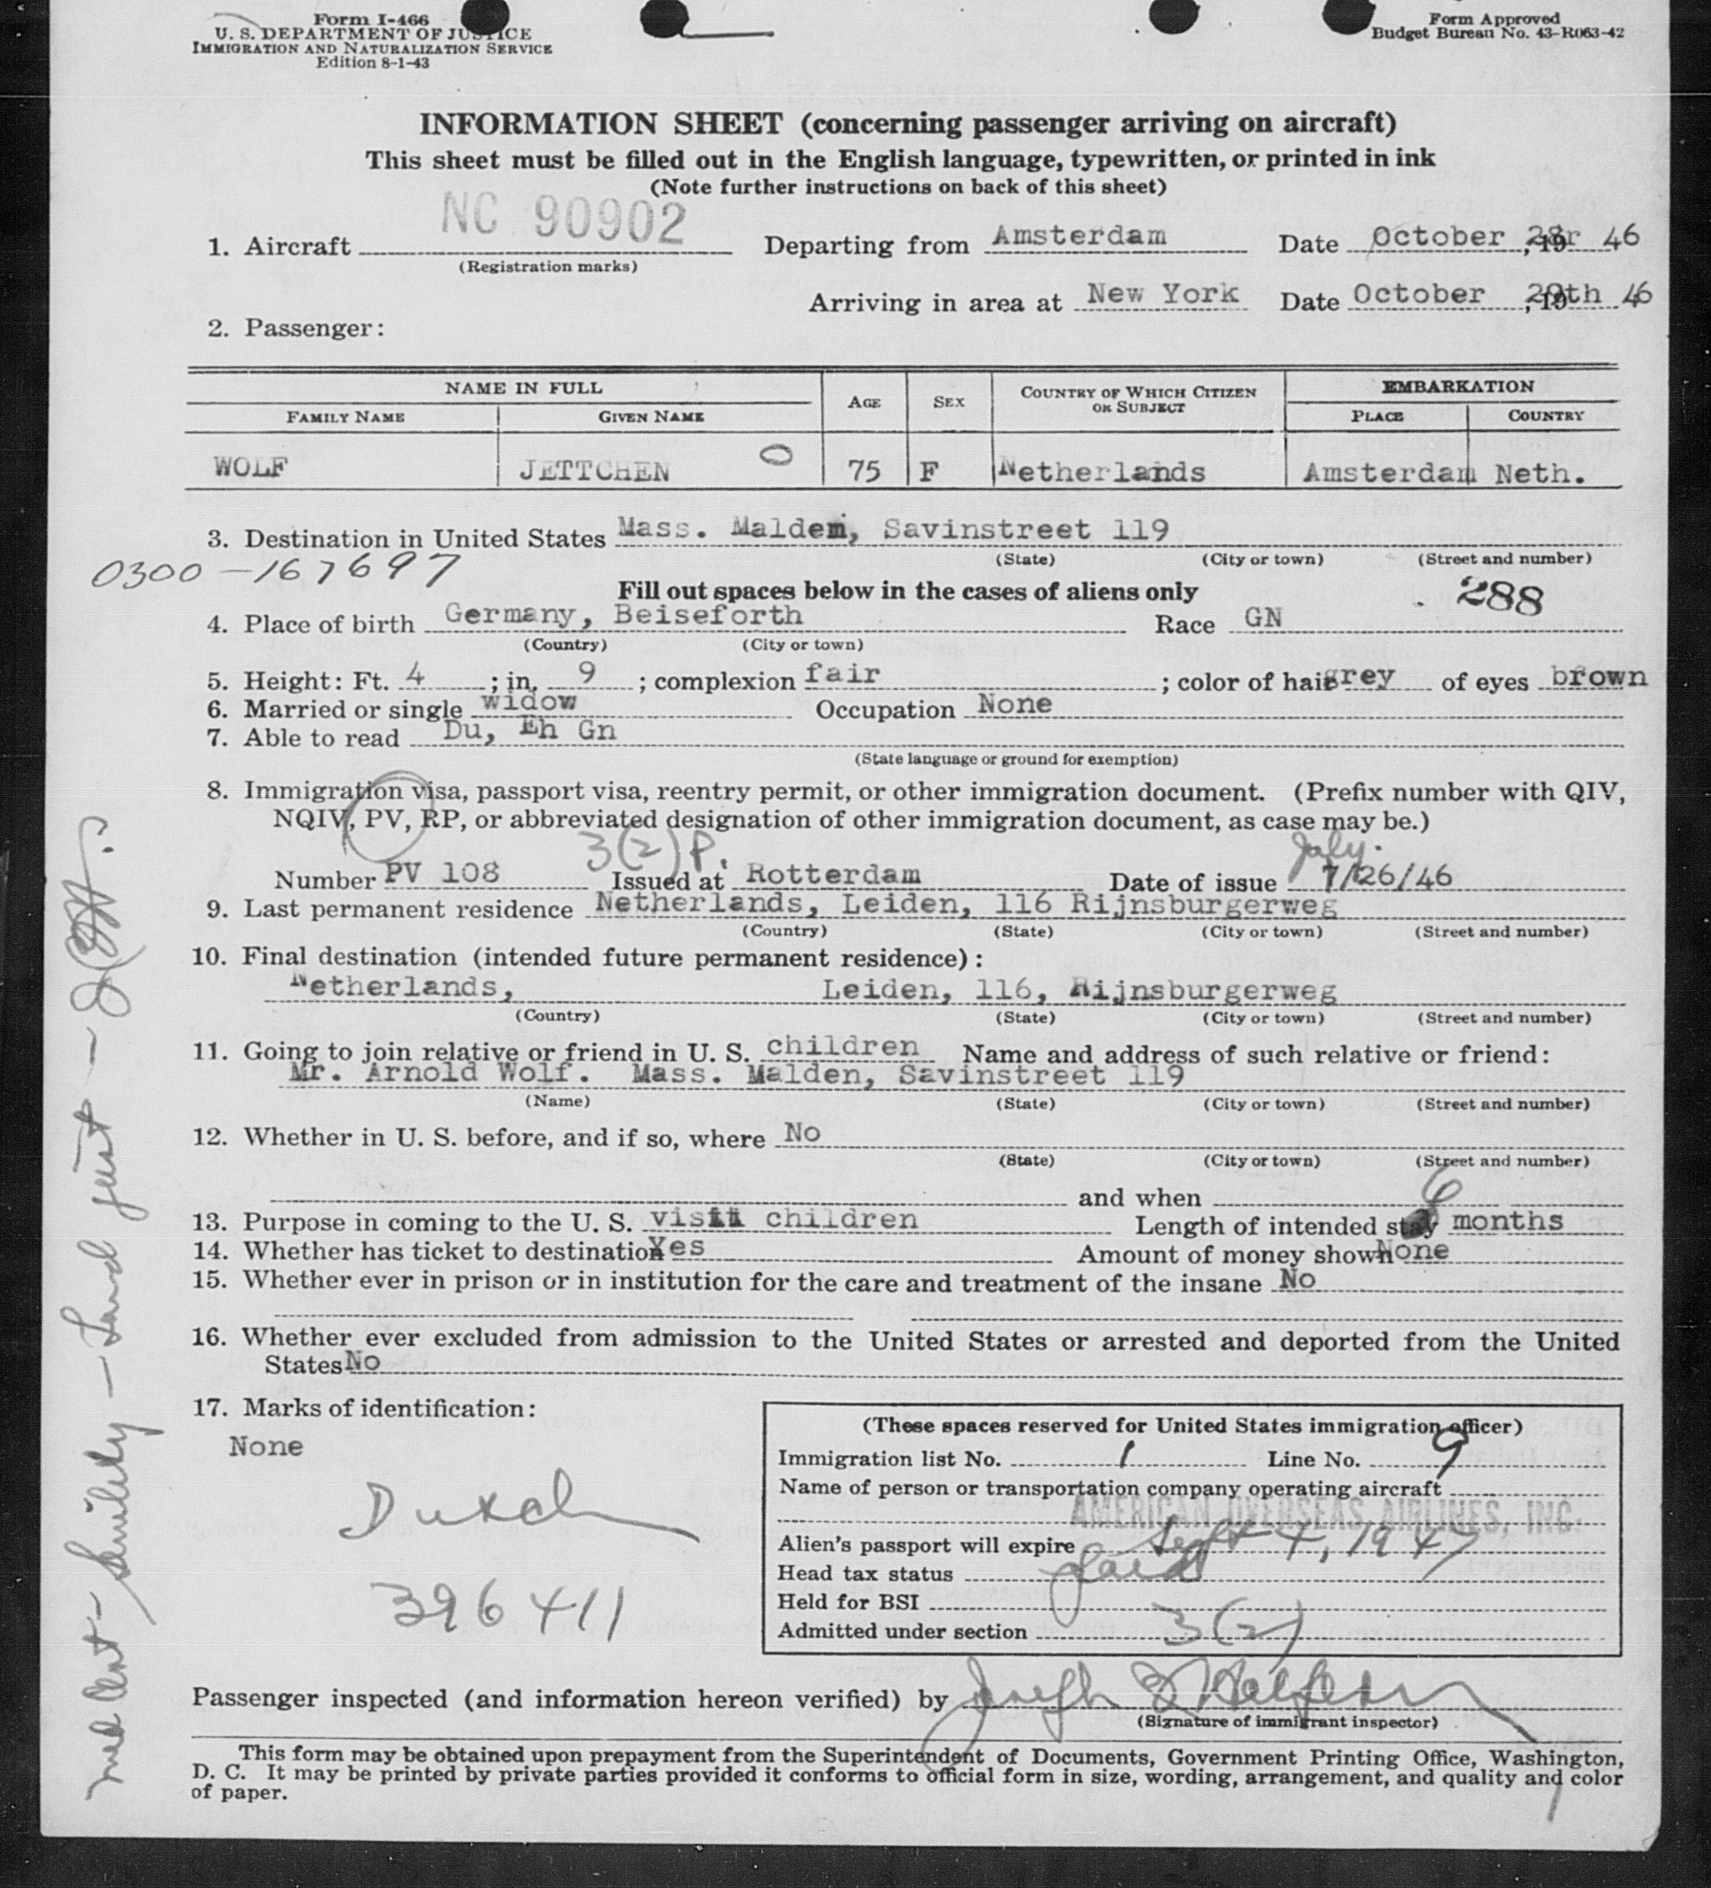 Form I-466
U. S. DEPARTMENT OF JUSTICE
IMMIGRATION AND NATURALIZATION SERVICE
Edition 8-1-43
Form Approved
Budget Bureau No. 43-R063-42
INFORMATION SHEET (concerning passenger arriving on aircraft)
This sheet must be filled out in the English language, typewritten, or printed in ink
(Note further instructions on back of this sheet)
1. Aircraft NC 90902 Departing from Amsterdam Date October 28r 46
(Registration marks)
Arriving in area at New York Date October 29th 46
2. Passenger:
NAME IN FULL AGE SEX COUNTRY OF WHICH CITIZEN OR SUBJECT EMBARKATION
FAMILY NAME GIVEN NAME PLACE COUNTRY
WOLF JETTCHEN O 75 F Netherlands Amsterdam Neth.
3. Destination in United States Mass. Malden, Savinstreet 119
(State) (City or town) (Street and number)
0300-167697
Fill out spaces below in the cases of aliens only 288
4. Place of birth Germany, Beiseforth Race GN
(Country) (City or town)
5. Height: Ft. 4 ; in. 9 ; complexion fair ; color of hair grey of eyes brown
6. Married or single widow Occupation None
7. Able to read Du, Eh Gn
(State language or ground for exemption)
8. Immigration visa, passport visa, reentry permit, or other immigration document. (Prefix number with QIV,
NQIV, PV, RP, or abbreviated designation of other immigration document, as case may be.)
3(2)P. July.
Number PV 108 Issued at Rotterdam Date of issue 7/26/46
9. Last permanent residence Netherlands, Leiden, 116 Rijnsburgerweg
(Country) (State) (City or town) (Street and number)
10. Final destination (intended future permanent residence):
Netherlands, Leiden, 116, Rijnsburgerweg
(Country) (State) (City or town) (Street and number)
11. Going to join relative or friend in U. S. children Name and address of such relative or friend:
Mr. Arnold Wolf. Mass. Malden, Savinstreet 119
(Name) (State) (City or town) (Street and number)
12. Whether in U. S. before, and if so, where No
(State) (City or town) (Street and number)
and when
13. Purpose in coming to the U. S. visit children Length of intended stay 6 months
14. Whether has ticket to destination Yes Amount of money shown None
15. Whether ever in prison or in institution for the care and treatment of the insane No
16. Whether ever excluded from admission to the United States or arrested and deported from the United
States No
17. Marks of identification:
None
Dutch
396411
(These spaces reserved for United States immigration officer)
Immigration list No. 1 Line No. 9
Name of person or transportation company operating aircraft
AMERICAN OVERSEAS AIRLINES, INC.
Alien's passport will expire Sept 4, 1947
Head tax status paid
Held for BSI
Admitted under section 3(2)
Passenger inspected (and information hereon verified) by
(Signature of immigrant inspector)
This form may be obtained upon prepayment from the Superintendent of Documents, Government Printing Office, Washington,
D. C. It may be printed by private parties provided it conforms to official form in size, wording, arrangement, and quality and color
of paper.